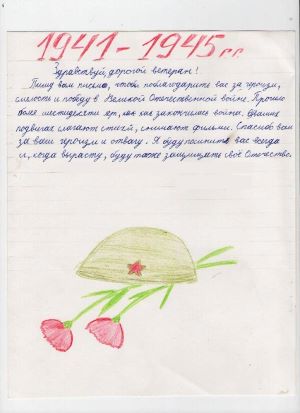 1941-1945 г.г.
Здравствуй, дорогой ветеран!
Пишу вам письмо, чтобы поблагодарить вас за героизм,
смелость и победу в Великой Отечественной войне. Прошло
более шестидесяти лет, как закончилась война. О ваших
подвигах слагают стихи, снимают фильмы. Спасибо вам
за ваш героизм и отвагу. Я буду помнить вас всегда
и, когда вырасту, буду также защищать своё Отечество.